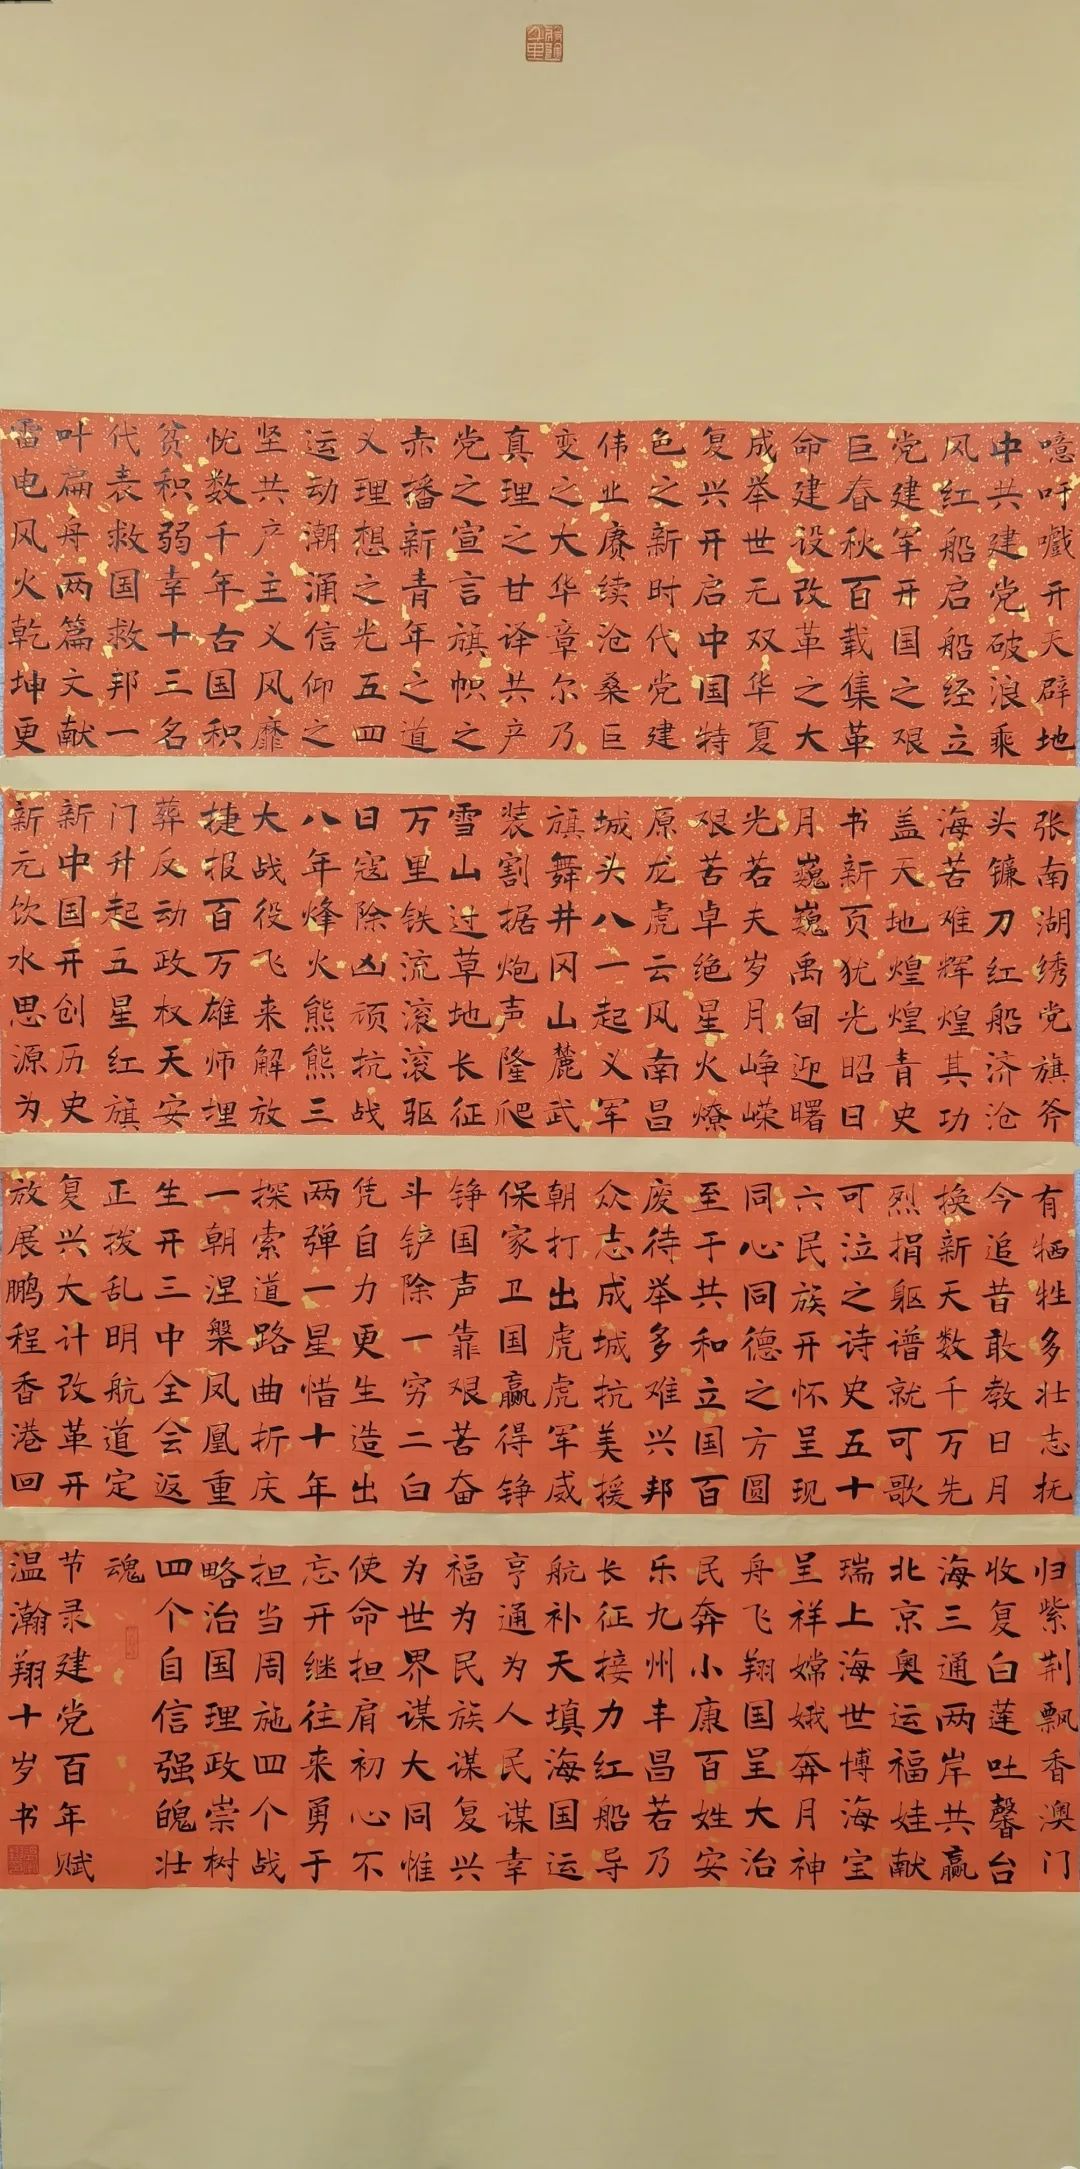 噫吁嚱开天辟地
中共建党破浪乘
风红船启船经立
党建军开国之艰
巨春秋百载集革
命建设改革之大
成举世无双华夏
复兴开启中国特
色之新时代党建
伟业赓续沧桑巨
变之大华章尔乃
真理之甘译共产
党之宣言旗帜之
赤播新青年之道
义理想之光五四
运动潮涌信仰之
坚共产主义风靡
忧数千年古国积
贫积弱幸十三名
代表救国救邦一
叶扁舟两篇文献
雷电风火乾坤更
张南湖绣党旗斧
头镰刀红船济沧
海苦难辉煌其功
盖天地煌煌青史
书新页犹光昭日
月巍巍禹甸迎曙
光若夫岁月峥嵘
艰苦卓绝星火燎
原龙虎云风南昌
城头八一起义军
旗舞井冈山麓武
装割据炮声隆爬
雪山过草地长征
万里铁流滚滚驱
日寇除凶顽抗战
八年烽火熊熊三
大战役飞来解放
捷报百万雄师埋
葬反动政权天安
门升起五星红旗
新中国开创历史
新元饮水思源为
有牺牲多壮志抚
今追昔敢教日月
换新天数千万先
烈捐躯谱就可歌
可泣之诗史五十
六民族开怀呈现
同心同德之方圆
至于共和立国百
废待举多难兴邦
众志成城抗美援
朝打出虎虎军威
保家卫国赢得铮
铮国声靠艰苦奋
斗铲除一穷二白
凭自力更生造出
两弹一星惜十年
探索道路曲折庆
一朝涅槃凤凰重
生开三中全会返
正拨乱明航道定
复兴大计改革开
放展鹏程香港回
归紫荆飘香澳门
收复白莲吐馨台
海三通两岸共赢
北京奥运福娃献
瑞上海世博海宝
呈祥嫦娥奔月神
舟飞翔国呈大治
民奔小康百姓安
乐九州丰昌若乃
长征接力红船导
航补天填海国运
亨通为人民谋幸
福为民族谋复兴
为世界谋大同惟
使命担肩初心不
忘开继往来勇于
担当周施四个战
略治国理政崇树
四个自信强魄壮
魂
节录建党百年赋
温瀚翔十岁书